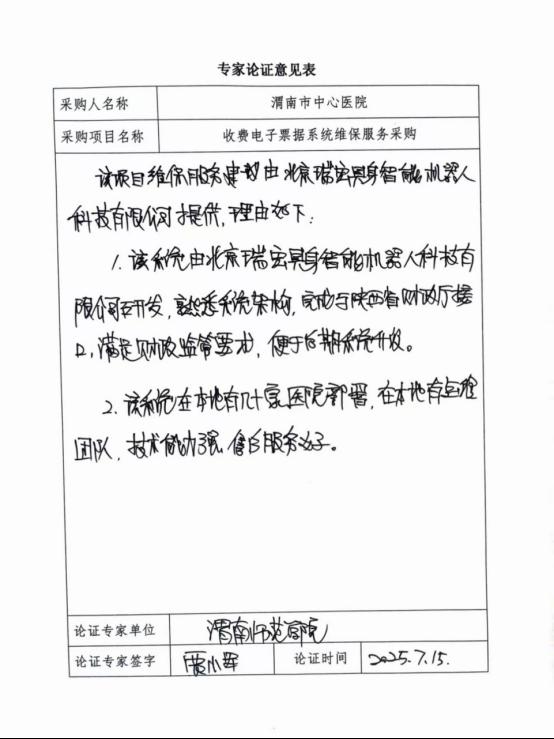 专家论证意见表
采购人名称 渭南市中心医院
采购项目名称 收费电子票据系统维保服务采购
该项目维保服务建议由北京瑞宏具身智能机器人
科技有限公司提供,理由如下:
1. 该系统由北京瑞宏具身智能机器人科技有
限公司研发,熟悉系统架构,完成与陕西省财政厅接
口,满足财政监管要求,便于后期系统升级。
2. 该系统在本地有几十家医院部署,在本地有运维
团队,技术能力强,售后服务好。
论证专家单位 渭南师范学院
论证专家签字 论证时间 2025.7.15.